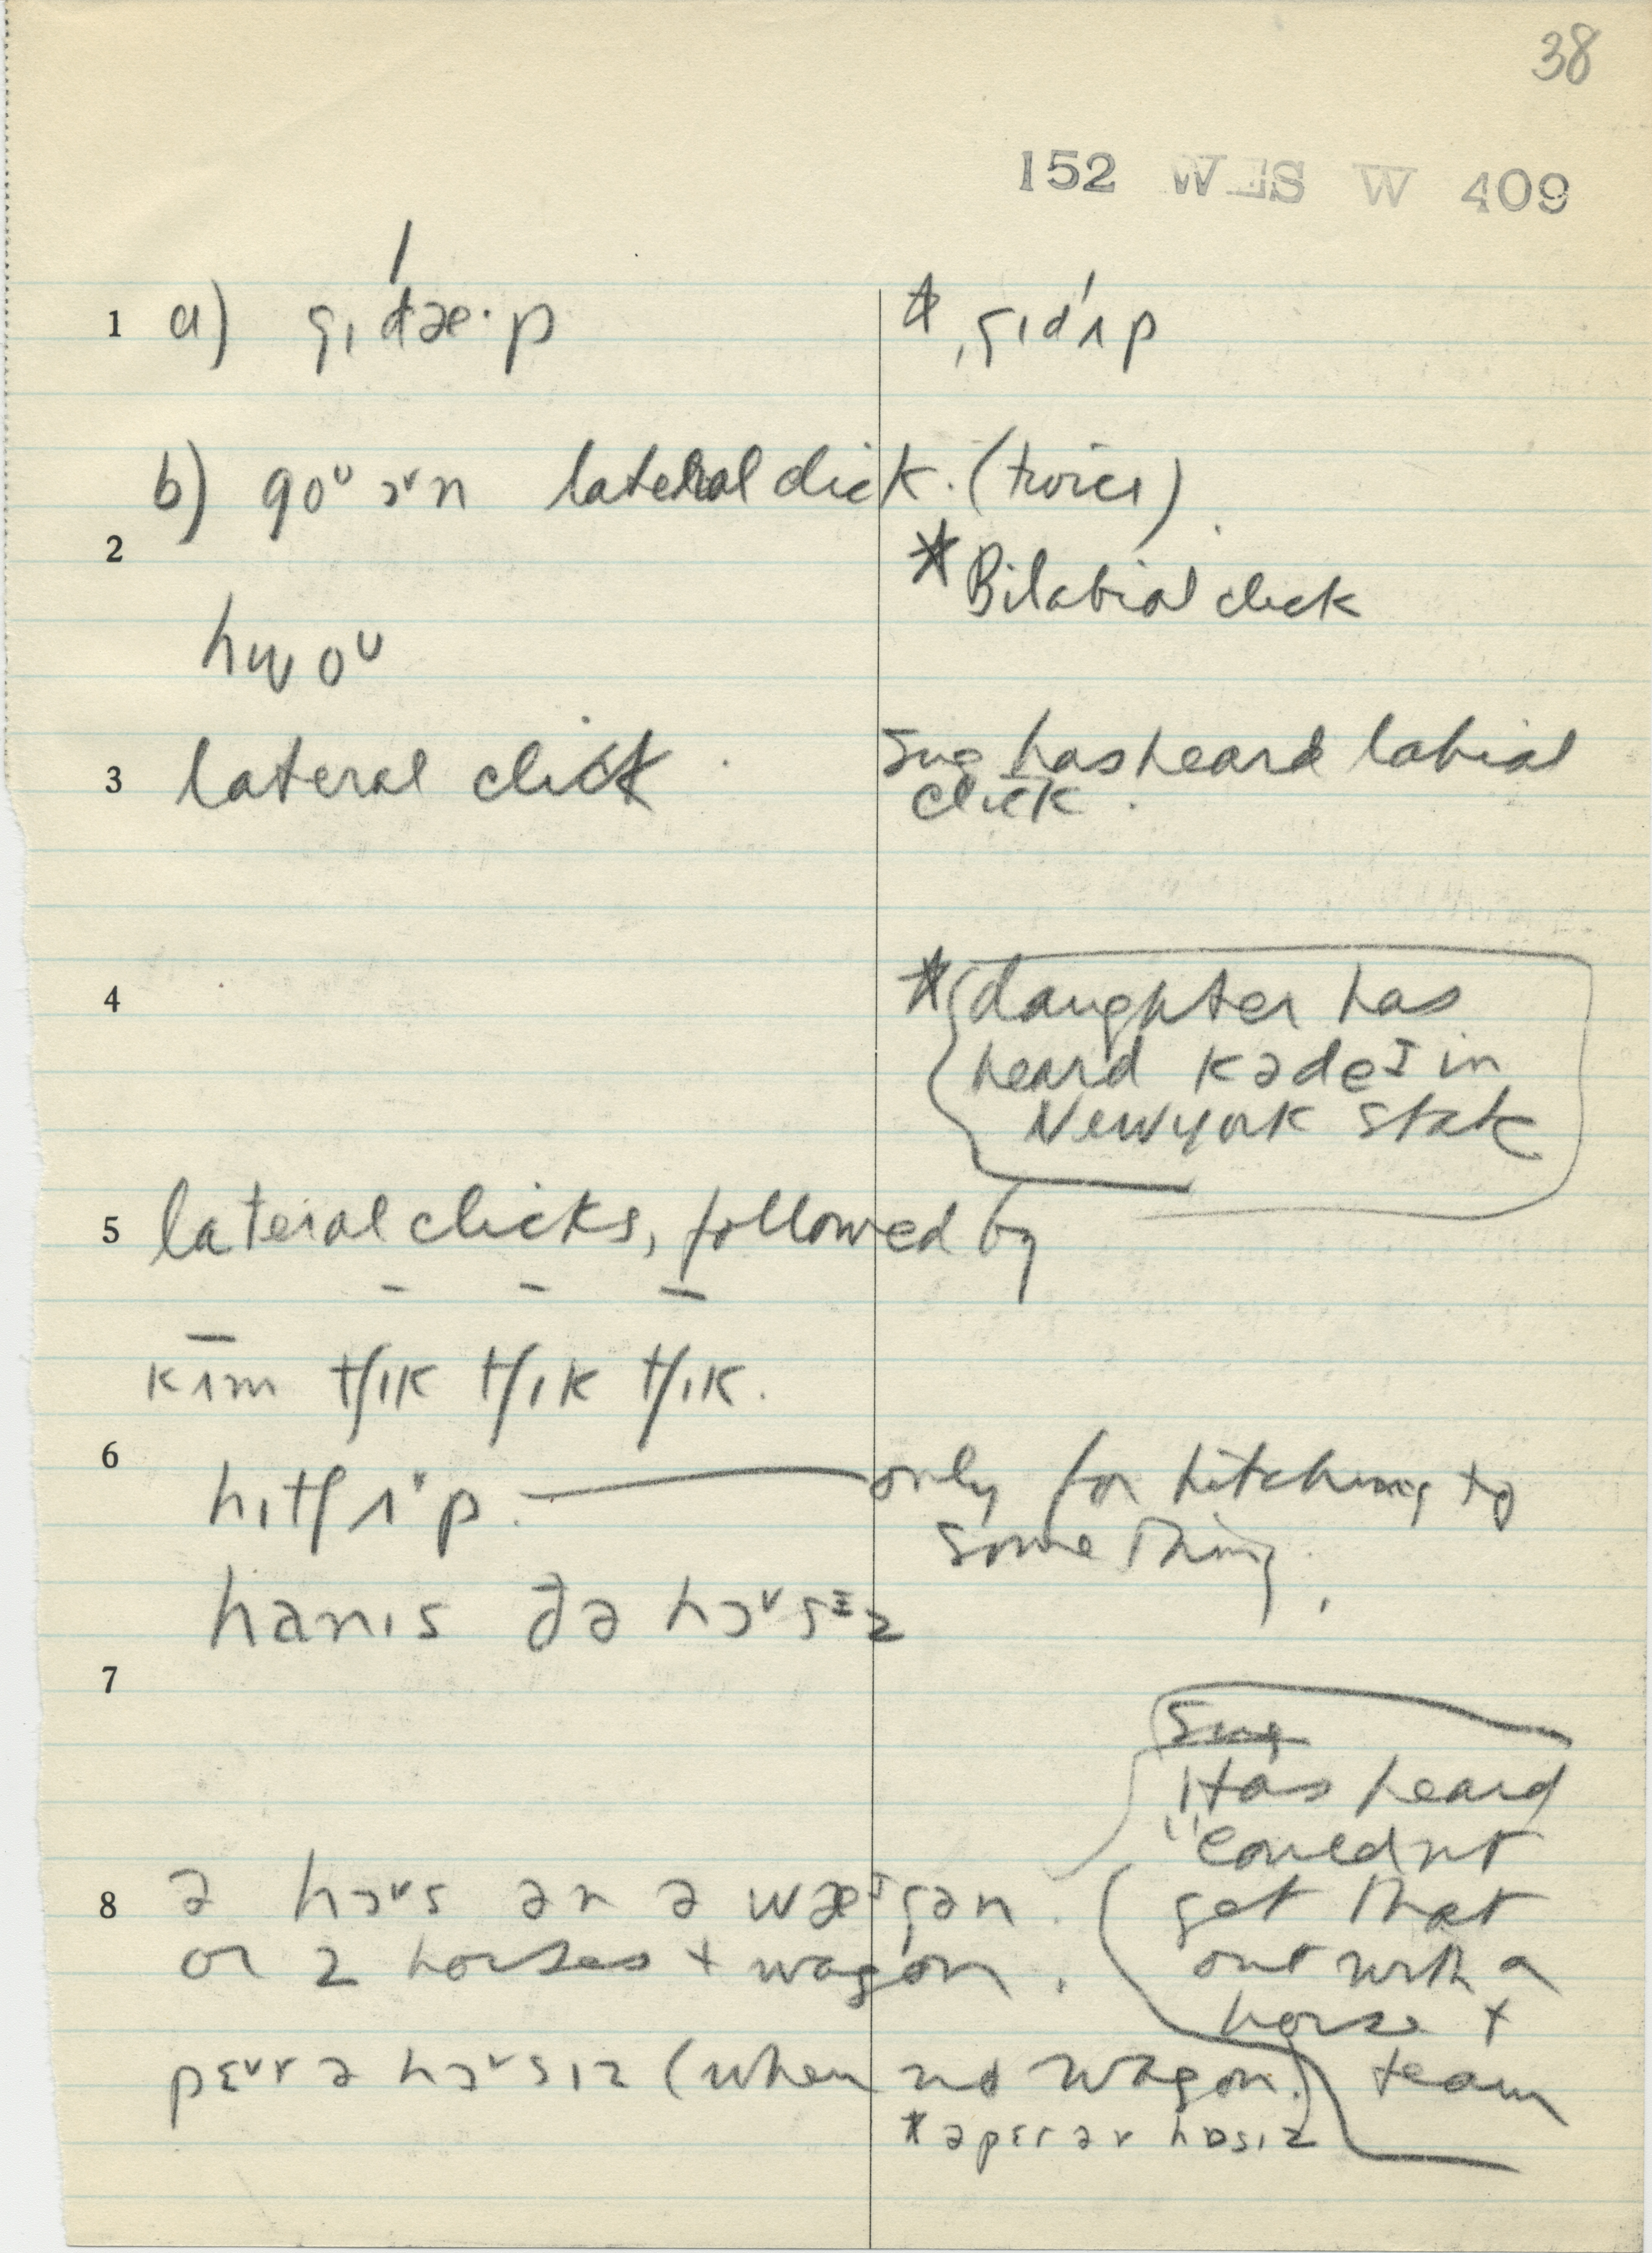 38
152 WES W 409
1 a) gɪdæ·p * ˌgɪdʹɪp
b) goᵁ ɔᵛn lateral click. (twice).
2 * Bilabial click
hwoᵁ
3 lateral click. Sug has heard labial
click.
4 * daughter has
heard kədeɪ in
New york state
5 lateral clicks, followed by
kɪm tʃɪk tʃɪk tʃɪk.
6 hɪtʃɪ·p. only for hitching to
something.
hanɪs ðə hɔᵛsɪz
7
Sug
Has heard
"couldnt
8 ə hɔᵛs ən ə wæᶦgən. get that
or 2 horses + wagon. out with a
horse +
pɛᵛr ə hɔᵛsɪz (when no wagon.) team
* əpɛr ər hɒsɪz